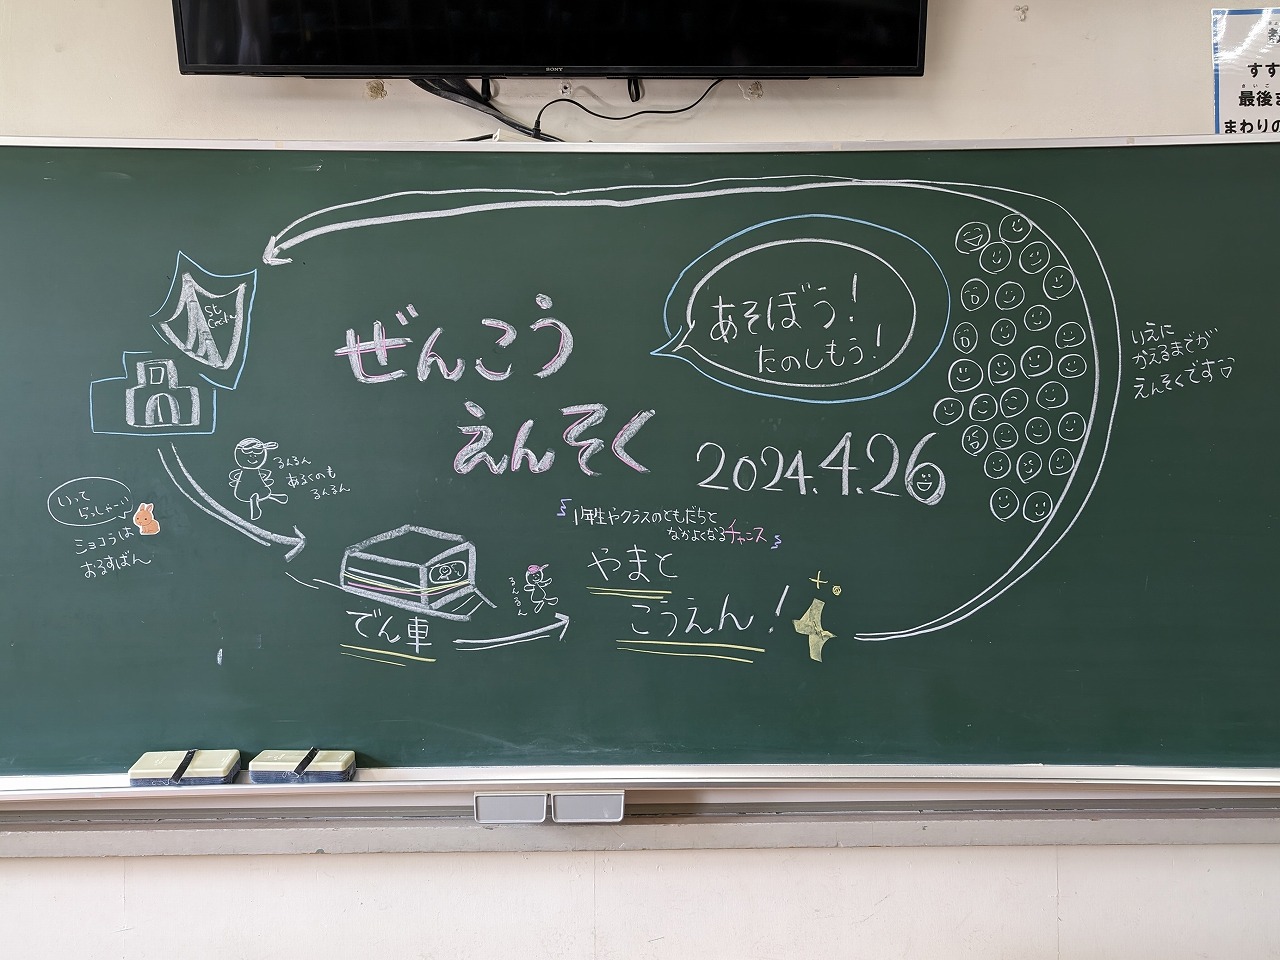 SONY
すす
さいご
最後ま
まわりの
St.
Cecilia
ぜんこう
えんそく
あそぼう!
たのしもう!
2024.4.26
いえに
かえるまでが
えんそくです
るんるん
あるくのも
るんるん
いって
らっしゃーい
ショコラは
おるすばん
1年生やクラスのともだちと
なかよくなるチャンス
やまと
こうえん!
でん車
るんるん